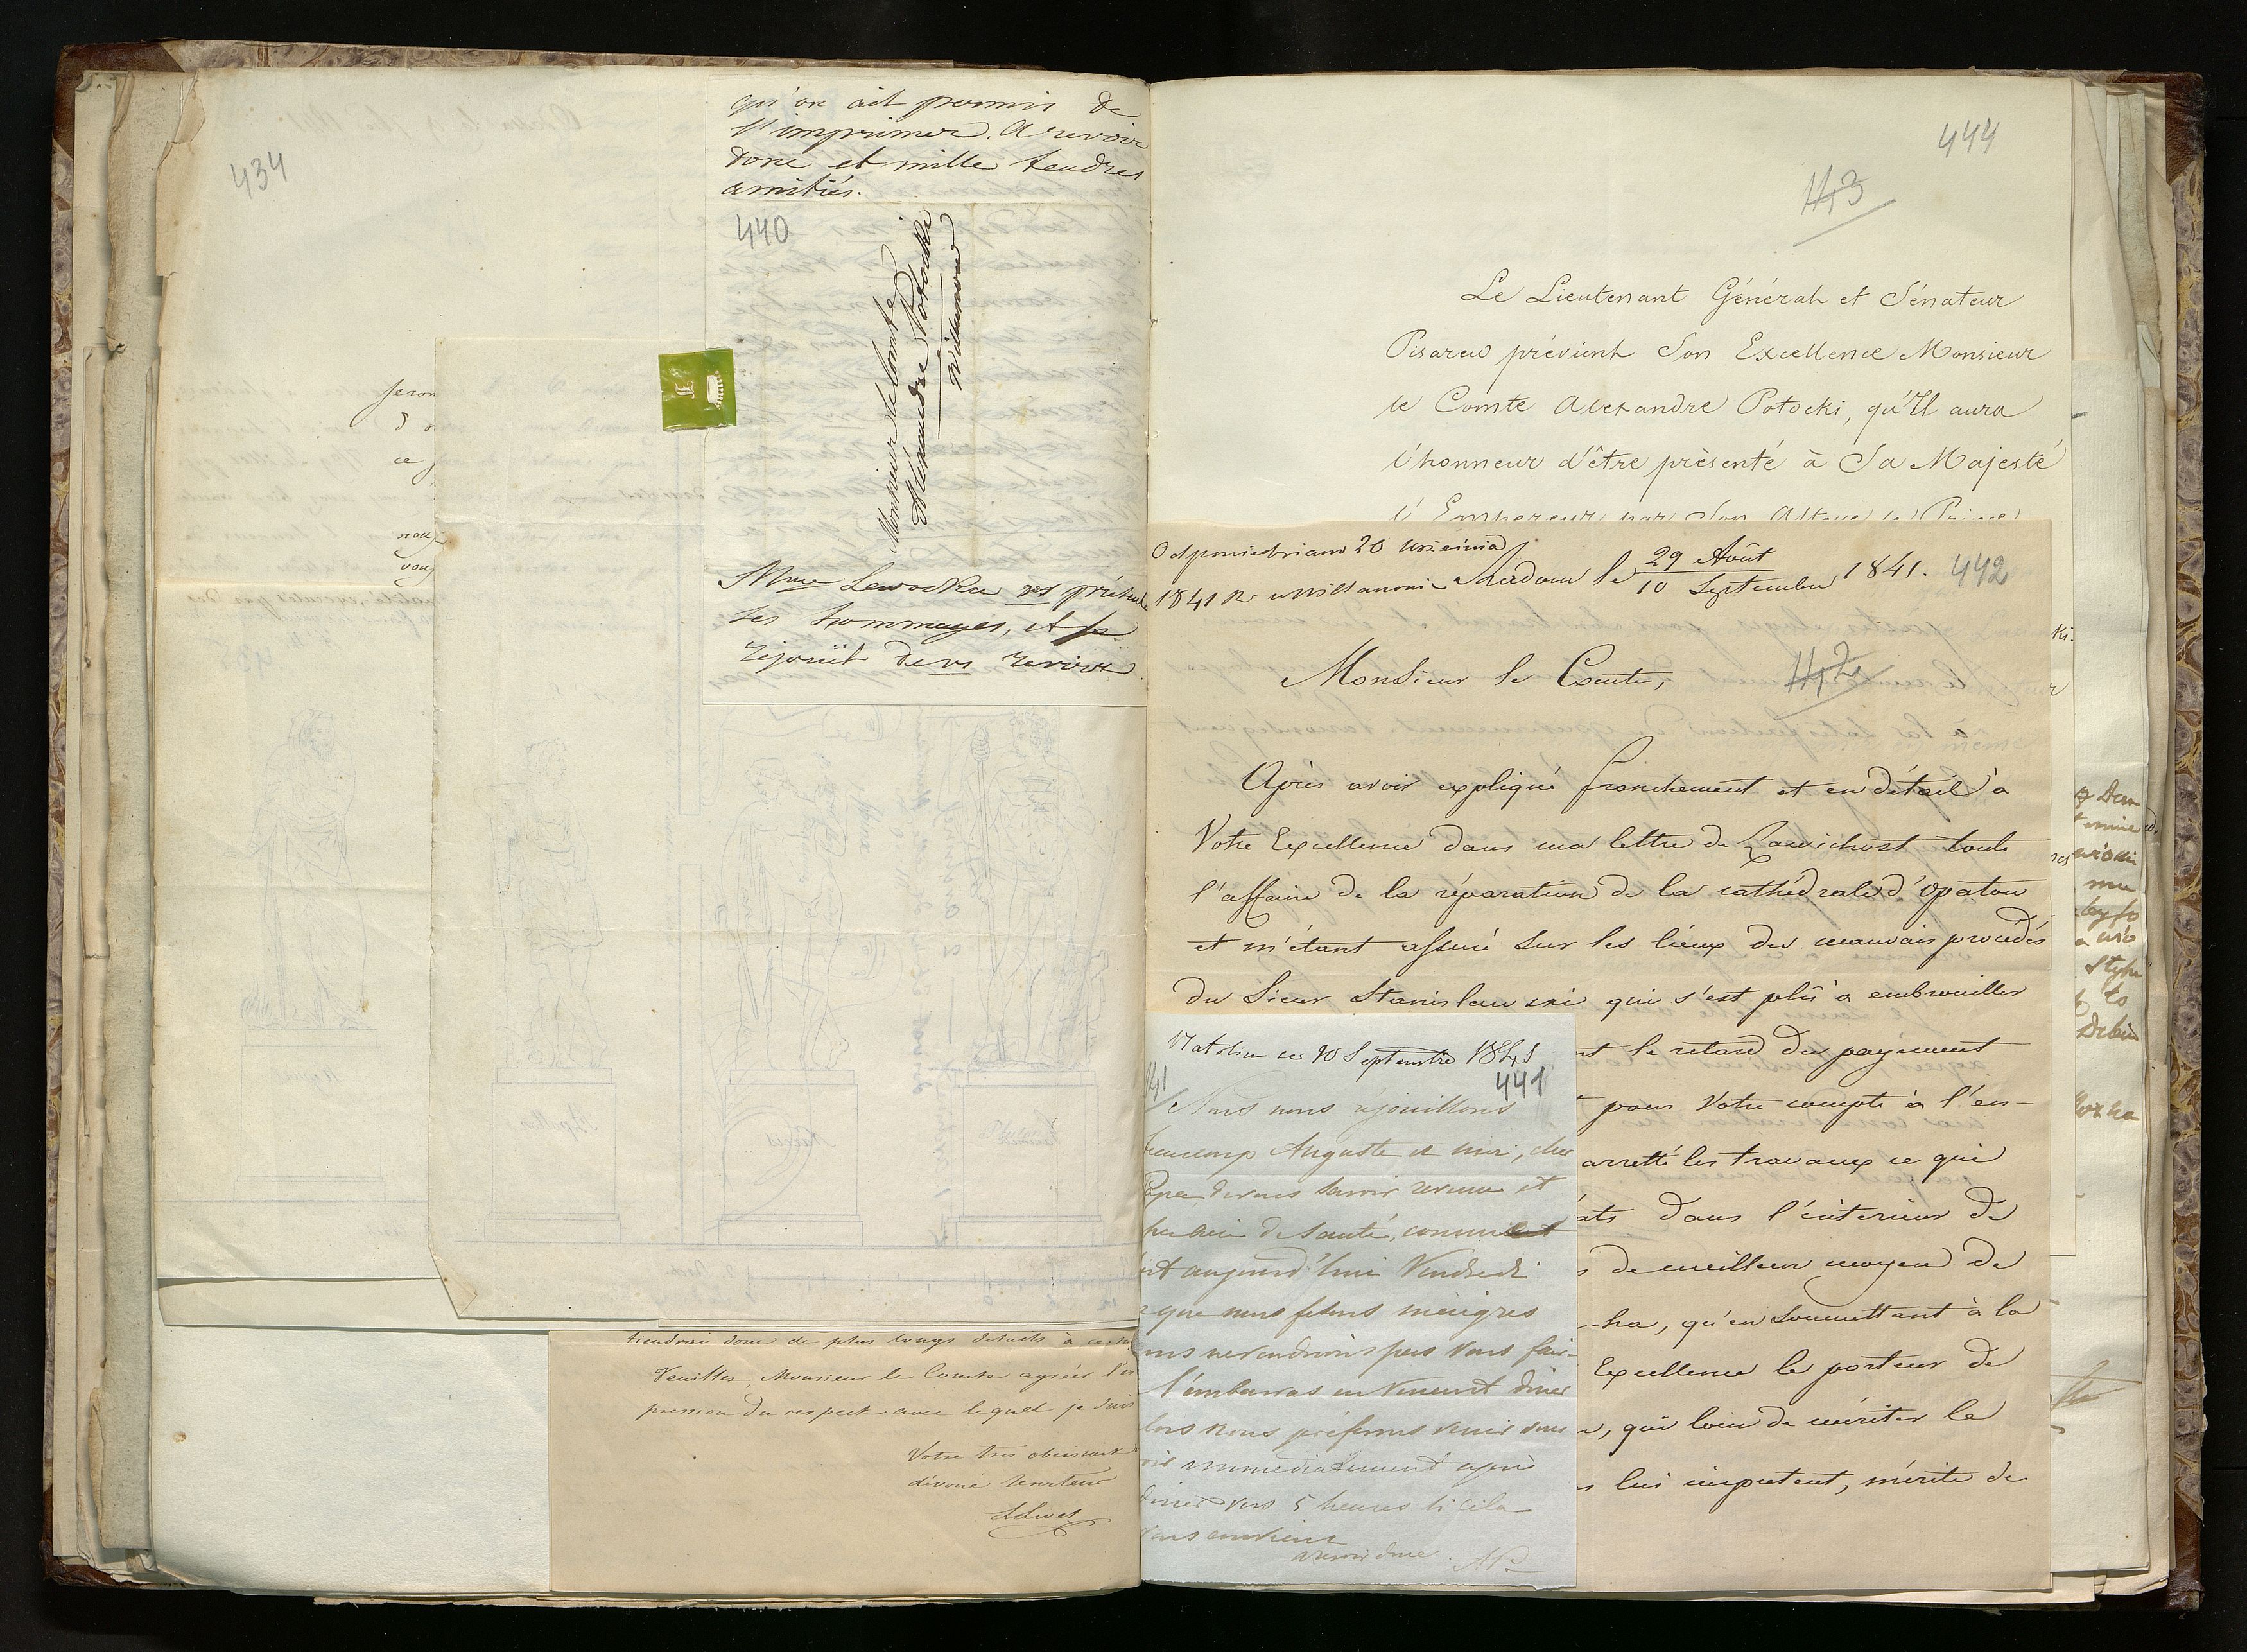 434
qu'on ait permis de
l'imprimer. A revoir
donc et mille tendres
amitiés.
440
Monsieur le Comte
Alexandre Potocki
Villanow
Mme Lewocka vs présente
ses hommages, et se
réjouit de vs revoir
seron
d
ce
nou
vous
Apollon
Plutus
tiendrai donc de plus longs détails à
Veuillez, Monsieur le Comte agréer l'ex
pression du respect avec lequel je suis
Votre très obéissant
dévoué serviteur
444
443
Le Lieutenant Général et Sénateur
Pisarew prévient Son Excellence Monsieur
le Comte Alexandre Potocki, qu'Il aura
l'honneur d'être présenté à Sa Majesté
l'Empereur par Son Altesse le Prince
Odpowiedziano 20 Września
1841 R. w Willanowie
Radom le 29 Août
10 Septembre 1841.
442
442
Monsieur le Comte,
Après avoir expliqué franchement et en détail à
Votre Excellence dans ma lettre de Zawichost toute
l'affaire de la réparation de la cathédrale d'Opatow
et m'étant assuré sur les lieux des mauvais procédés
du Sieur Stanislawski qui s'est plû à embrouiller
nt le retard du payement
pour Votre compte à l'en-
arretté les travaux ce qui
ats dans l'interieur de
s de meilleur moyen de
-ha, qu'en soumettant à la
Excellence le porteur de
, qui loin de mériter le
s lui imputent, mérite de
Natolin ce 10 Septembre 1841
441
Nous nous rejouissons
beaucoup Auguste et moi, cher
Papa de vous savoir revenu et
de santé, comme
est aujourd'hui Vendredi
que nous fesons maigres
ns ne voudrions pas vous fair
l'embarras en venant diner
lors nous préferons venir vous
voir immediatement après
diner vers 5 heures si cela
vous convient
a revoir donc. AP.